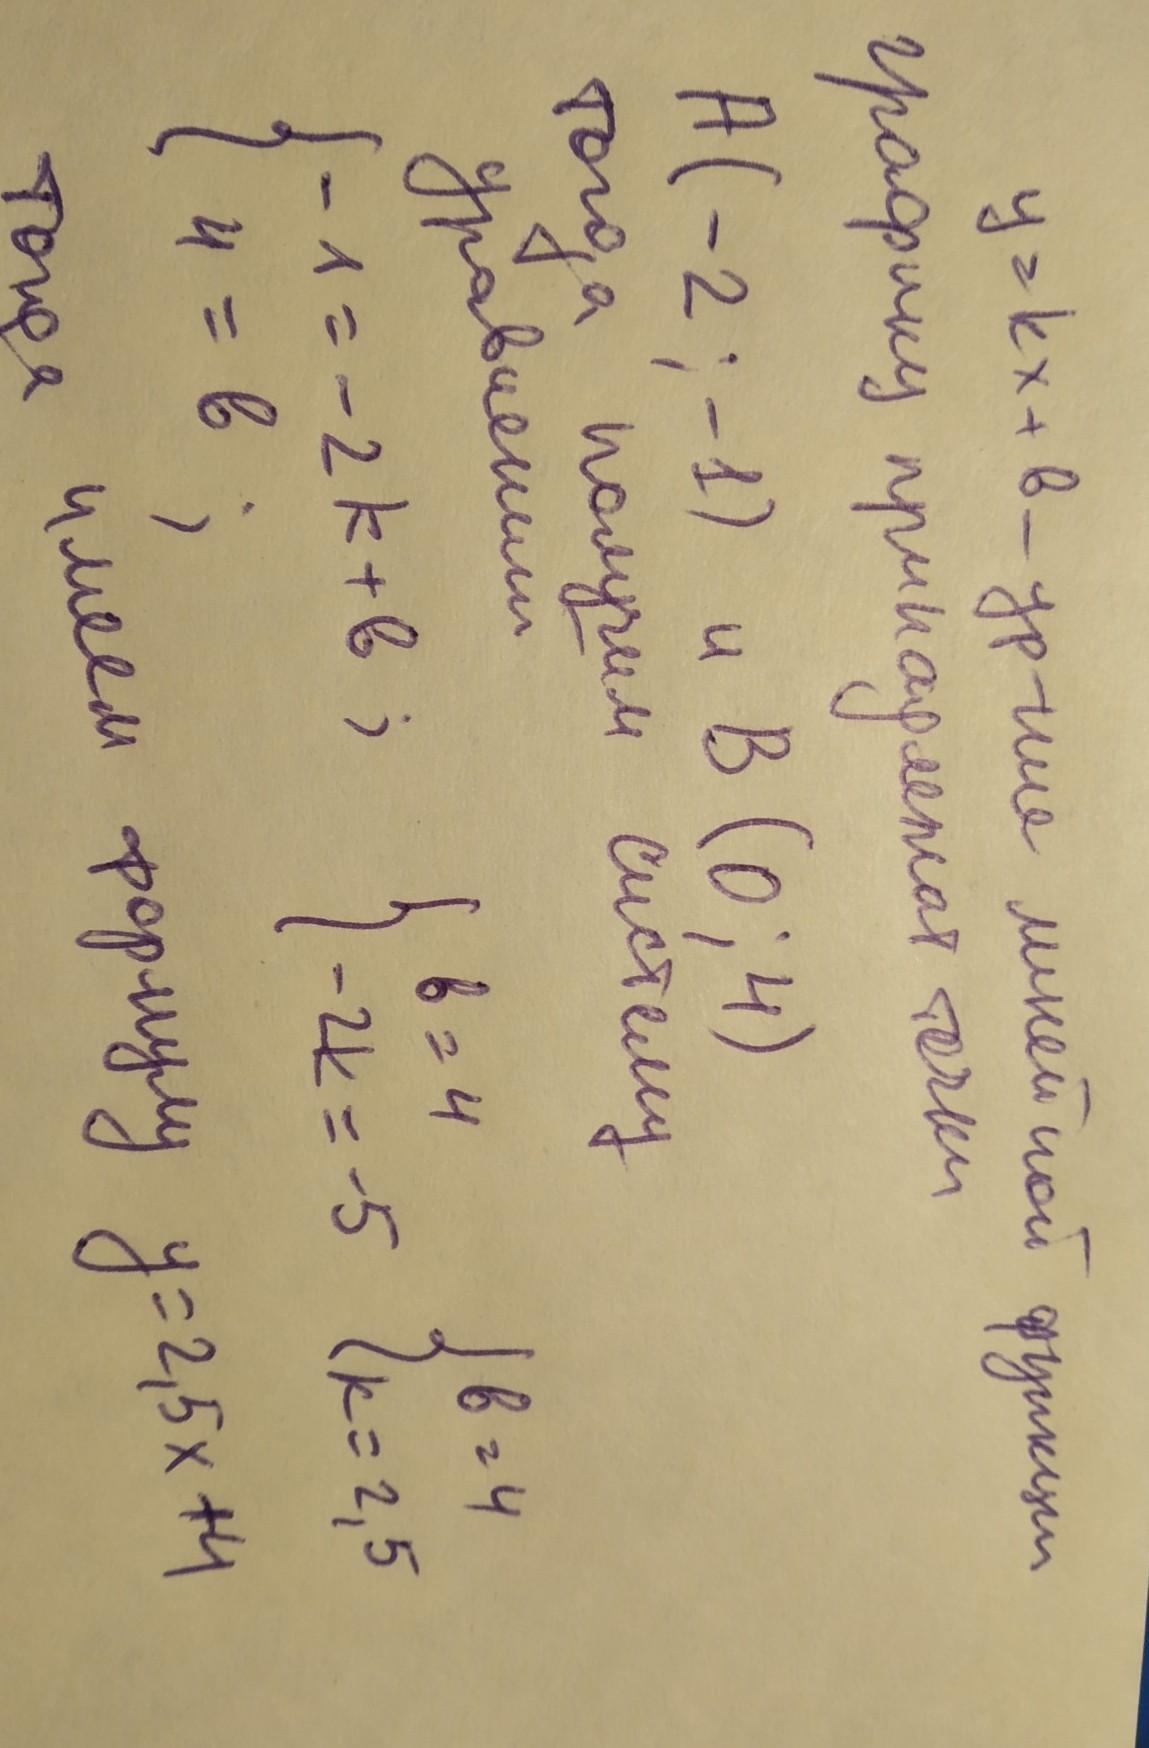 y = kx + b - ур-ние линейной функции
графику принадлежат точки
A(-2; -1) и B(0; 4)
тогда получим систему
уравнений
{ -1 = -2k + b; { b = 4 { b = 4
{ 4 = b; { -2k = -5 { k = 2,5
тогда имеем формулу y = 2,5x + 4